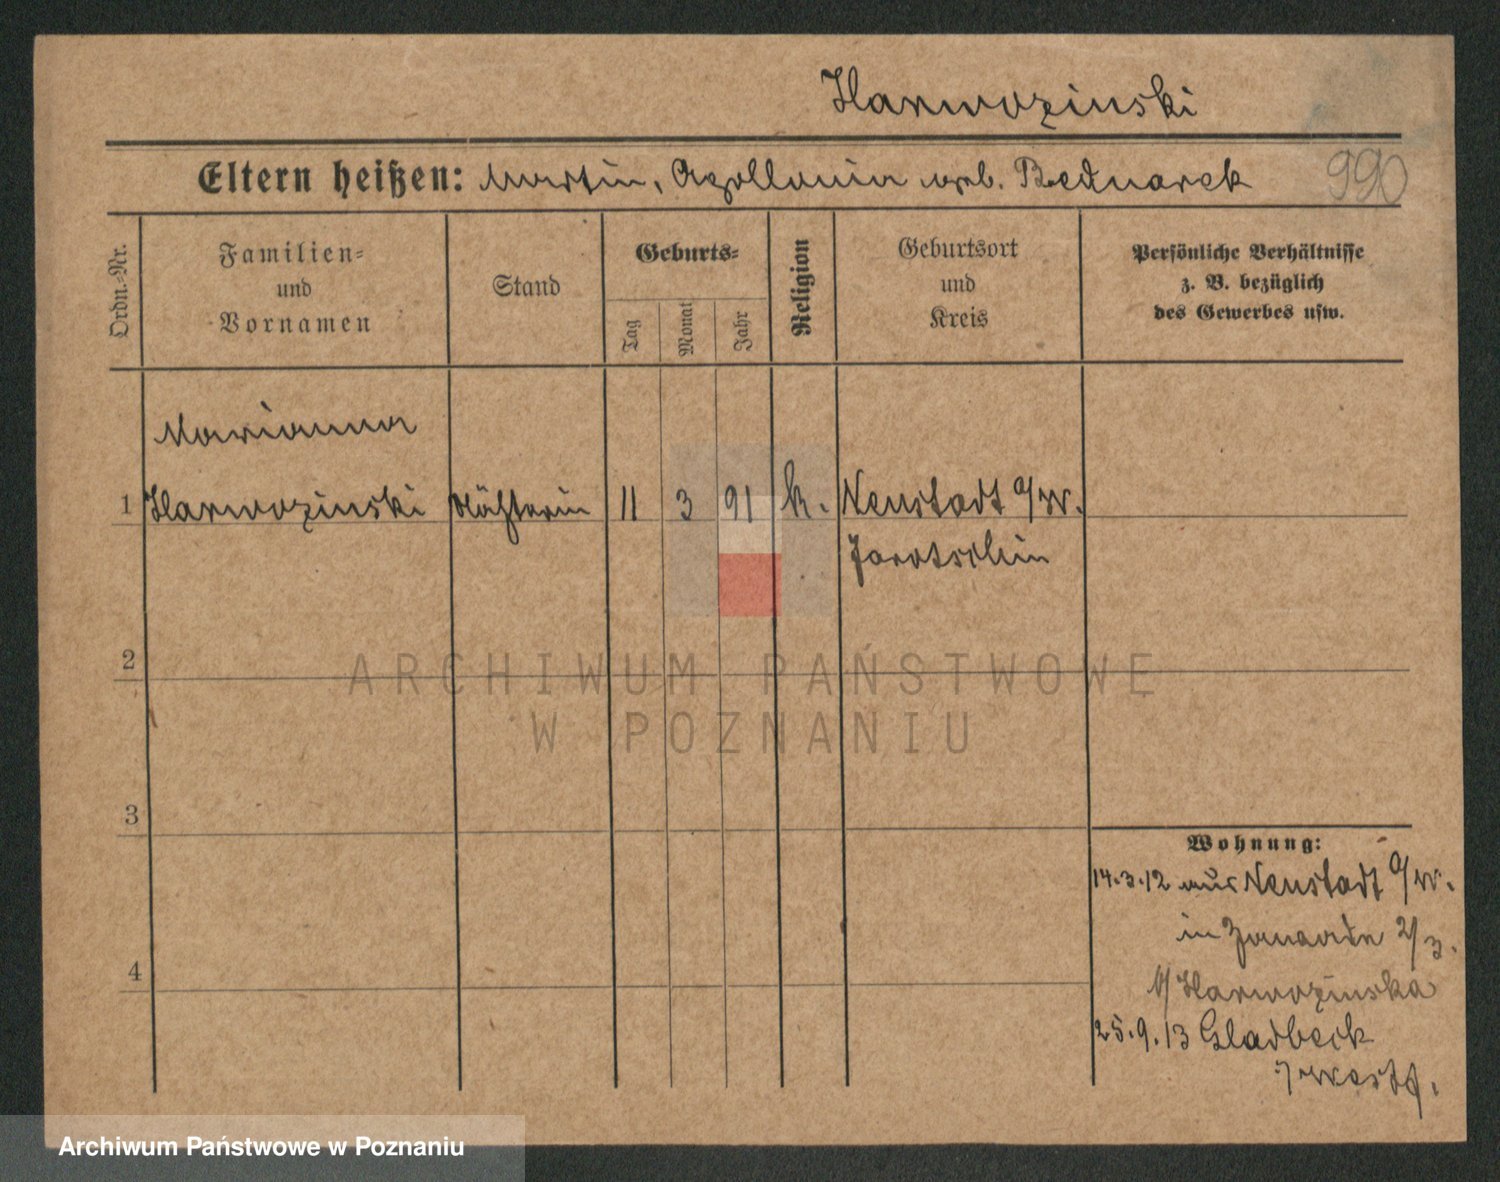 Harwozinski
Eltern heißen: Martin, Apollonia geb. Bednarek 990
Ordn.-Nr.
Familien-
und
Vornamen
Stand
Geburts-
Tag
Monat
Jahr
Religion
Geburtsort
und
Kreis
Persönliche Verhältnisse
z. B. bezüglich
des Gewerbes usw.
Marianna
1 Harwozinski Nähterin 11 3 91 k. Neustadt a/W.
Jarotschin
2
3
4
Wohnung:
14.3.12 aus Neustadt a/W.
in 2/3.
b/ Harwozinska
25.9.13 Gladbeck
i/ Westf.
ARCHIWUM PAŃSTWOWE
W POZNANIU
Archiwum Państwowe w Poznaniu